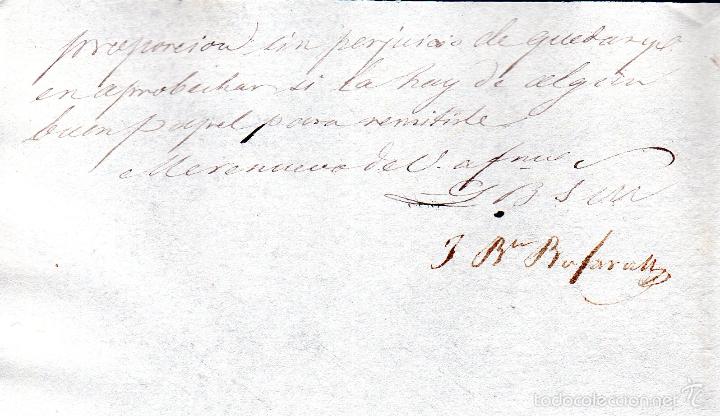 proporcion sin perjuicio de que
en aprobechar si la hay de algun
buen papel para remitirle
Me renuevo de V. afmo
Q B S M
J Bta Bofarull
todocoleccion.net